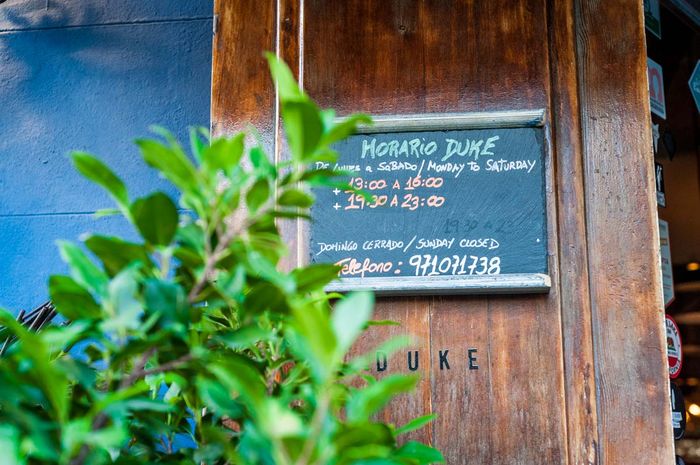 HORARIO DUKE
DE LUNES A SABADO / MONDAY TO SATURDAY
+ 13:00 A 16:00
+ 19:30 A 23:00
DOMINGO CERRADO / SUNDAY CLOSED
Telefono: 971071738
DUKE